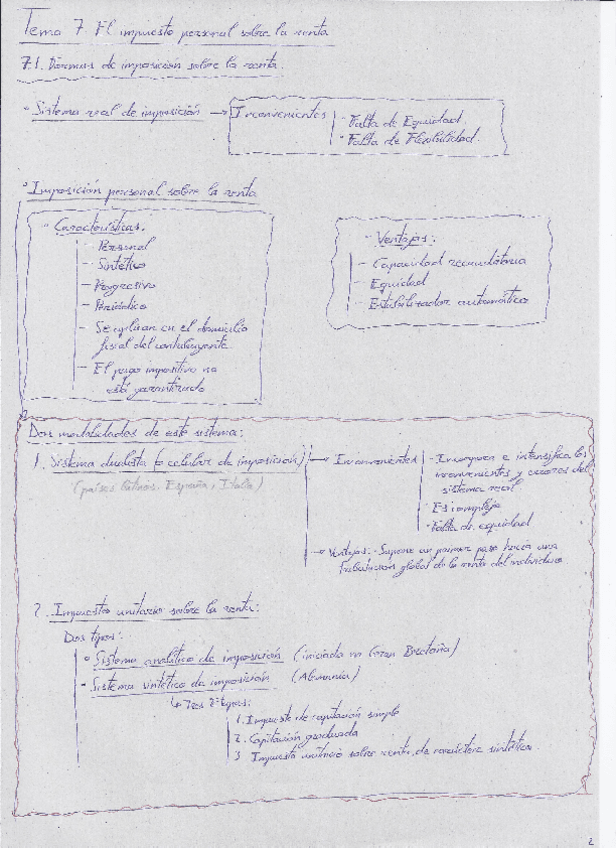 Tema 7. El impuesto personal sobre la renta
7.1. Formas de imposición sobre la renta.
Sistema real de imposición → Inconvenientes
- Falta de Equidad.
- Falta de Flexibilidad.
Imposición personal sobre la renta
- Características.
- Personal
- Sintético
- Progresivo
- Periódico
- Se aplican en el domicilio
fiscal del contribuyente
- El pago impositivo no
está garantizado
- Ventajas:
- Capacidad recaudatoria
- Equidad
- Estabilizador automático
Dos modalidades de este sistema:
1. Sistema dualista (o celular de imposición)
(países latinos. España, Italia)
→ Inconvenientes
- Incorpora e intensifica los
inconvenientes y errores del
sistema real
- Es complejo
- Falta de equidad
→ Ventajas: - Supone un primer paso hacia una
tributación global de la renta del individuo.
2. Impuesto unitario sobre la renta:
Dos tipos:
Sistema analítico de imposición (iniciada en Gran Bretaña)
- Sistema sintético de imposición (Alemania)
↳ Tres Etapas:
1. Impuesto de capitación simple
2. Capitación graduada
3. Impuesto unitario sobre renta de carácter sintético.
2